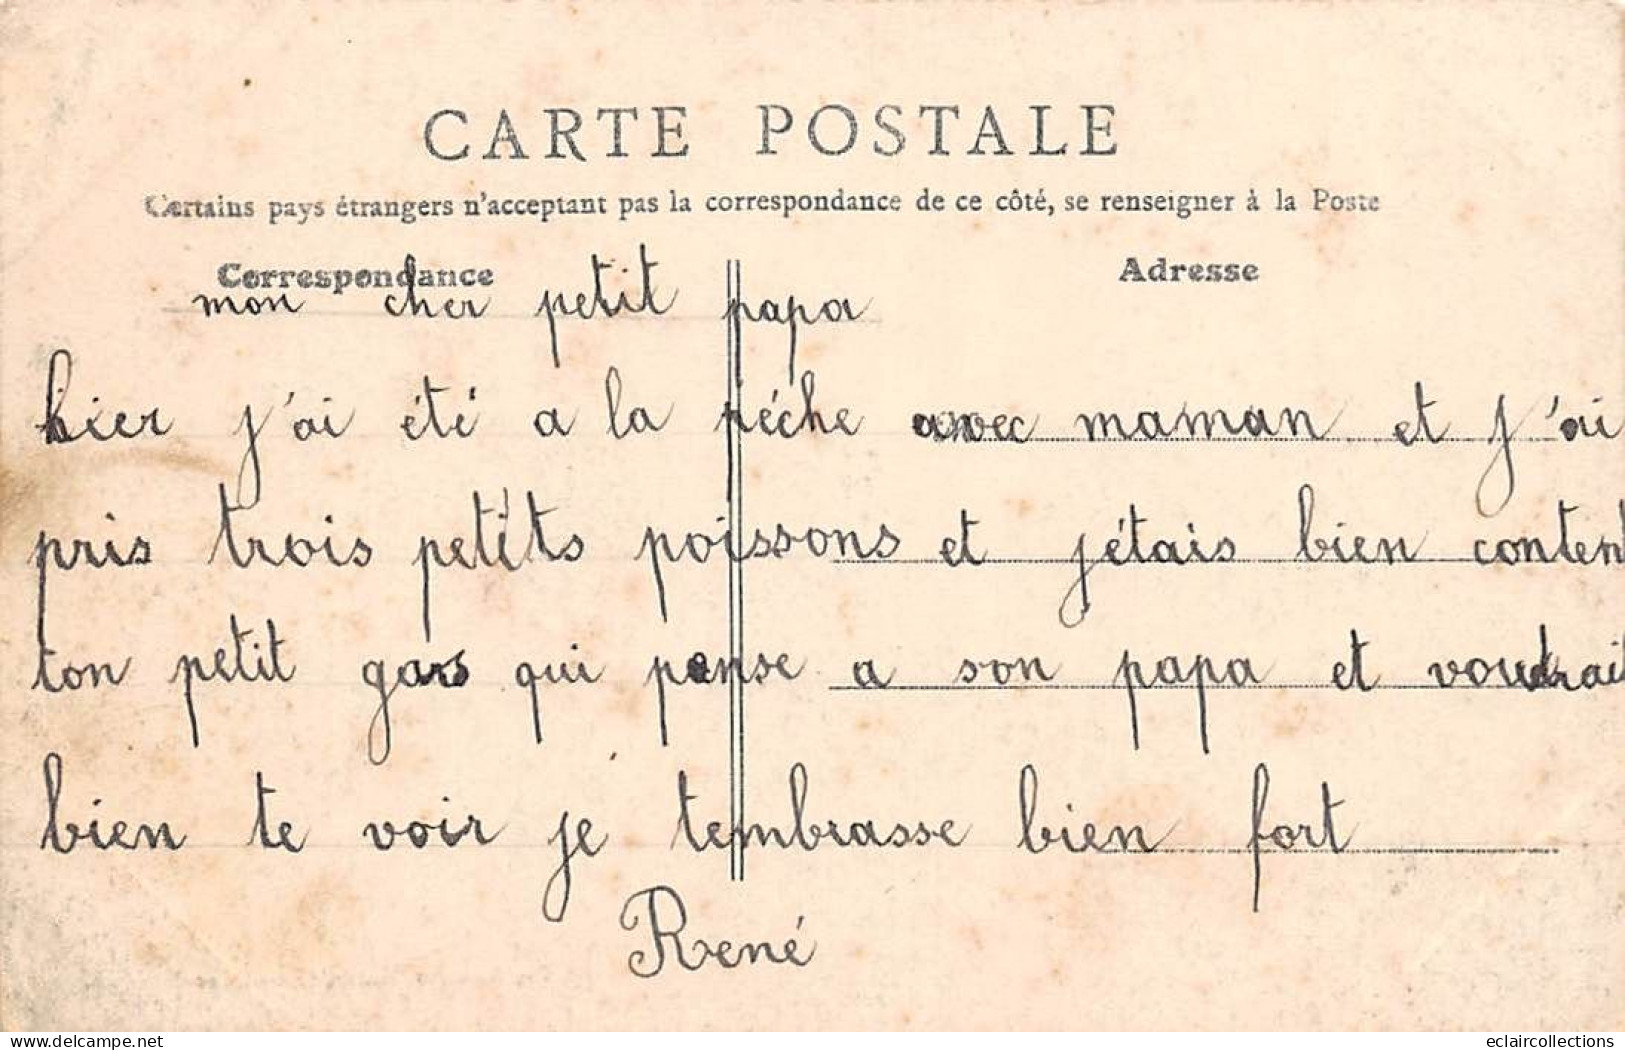 CARTE POSTALE
Certains pays étrangers n'acceptant pas la correspondance de ce côté, se renseigner à la Poste
Correspondance
Adresse
mon cher petit papa
hier j'ai été a la péche avec maman et j'ai
pris trois petits poissons et jétais bien content
ton petit gars qui panse a son papa et voudrait
bien te voir je tembrasse bien fort
René
delcampe.net
eclaircollections